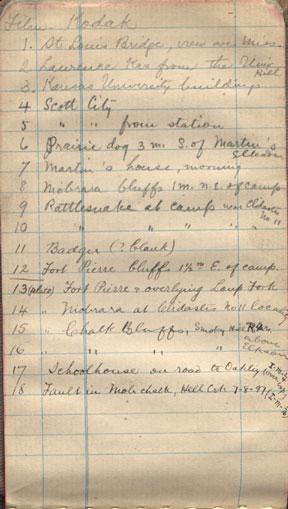 Film. Kodak
1. St Louis Bridge, view over Miss.
2 Lawrence Kas from the Univ. Hill
3. Kansas University buildings
4 Scott City
5 " " from station
6 Prairie dog 3 mi. S. of Martin's
7 Martin's house, morning
8 Niobrara bluffs 1 mi. N.E. of camp
9 Rattlesnake at camp near Clidastes No 11
10 " " " "
11 Badger (? blank)
12 Fort Pierre Bluffs 1½ m E. of camp.
13 (plate) Fort Pierre & overlying Loup Fork
14 " Niobrara at Clidastes No 11 locality
15 " Chalk Bluffs, Smoky Hill R.
above Elkader
16 " " " "
17 Schoolhouse on road to Oakley
18 Fault in Niob. chalk, Hell Crk 7-8-97